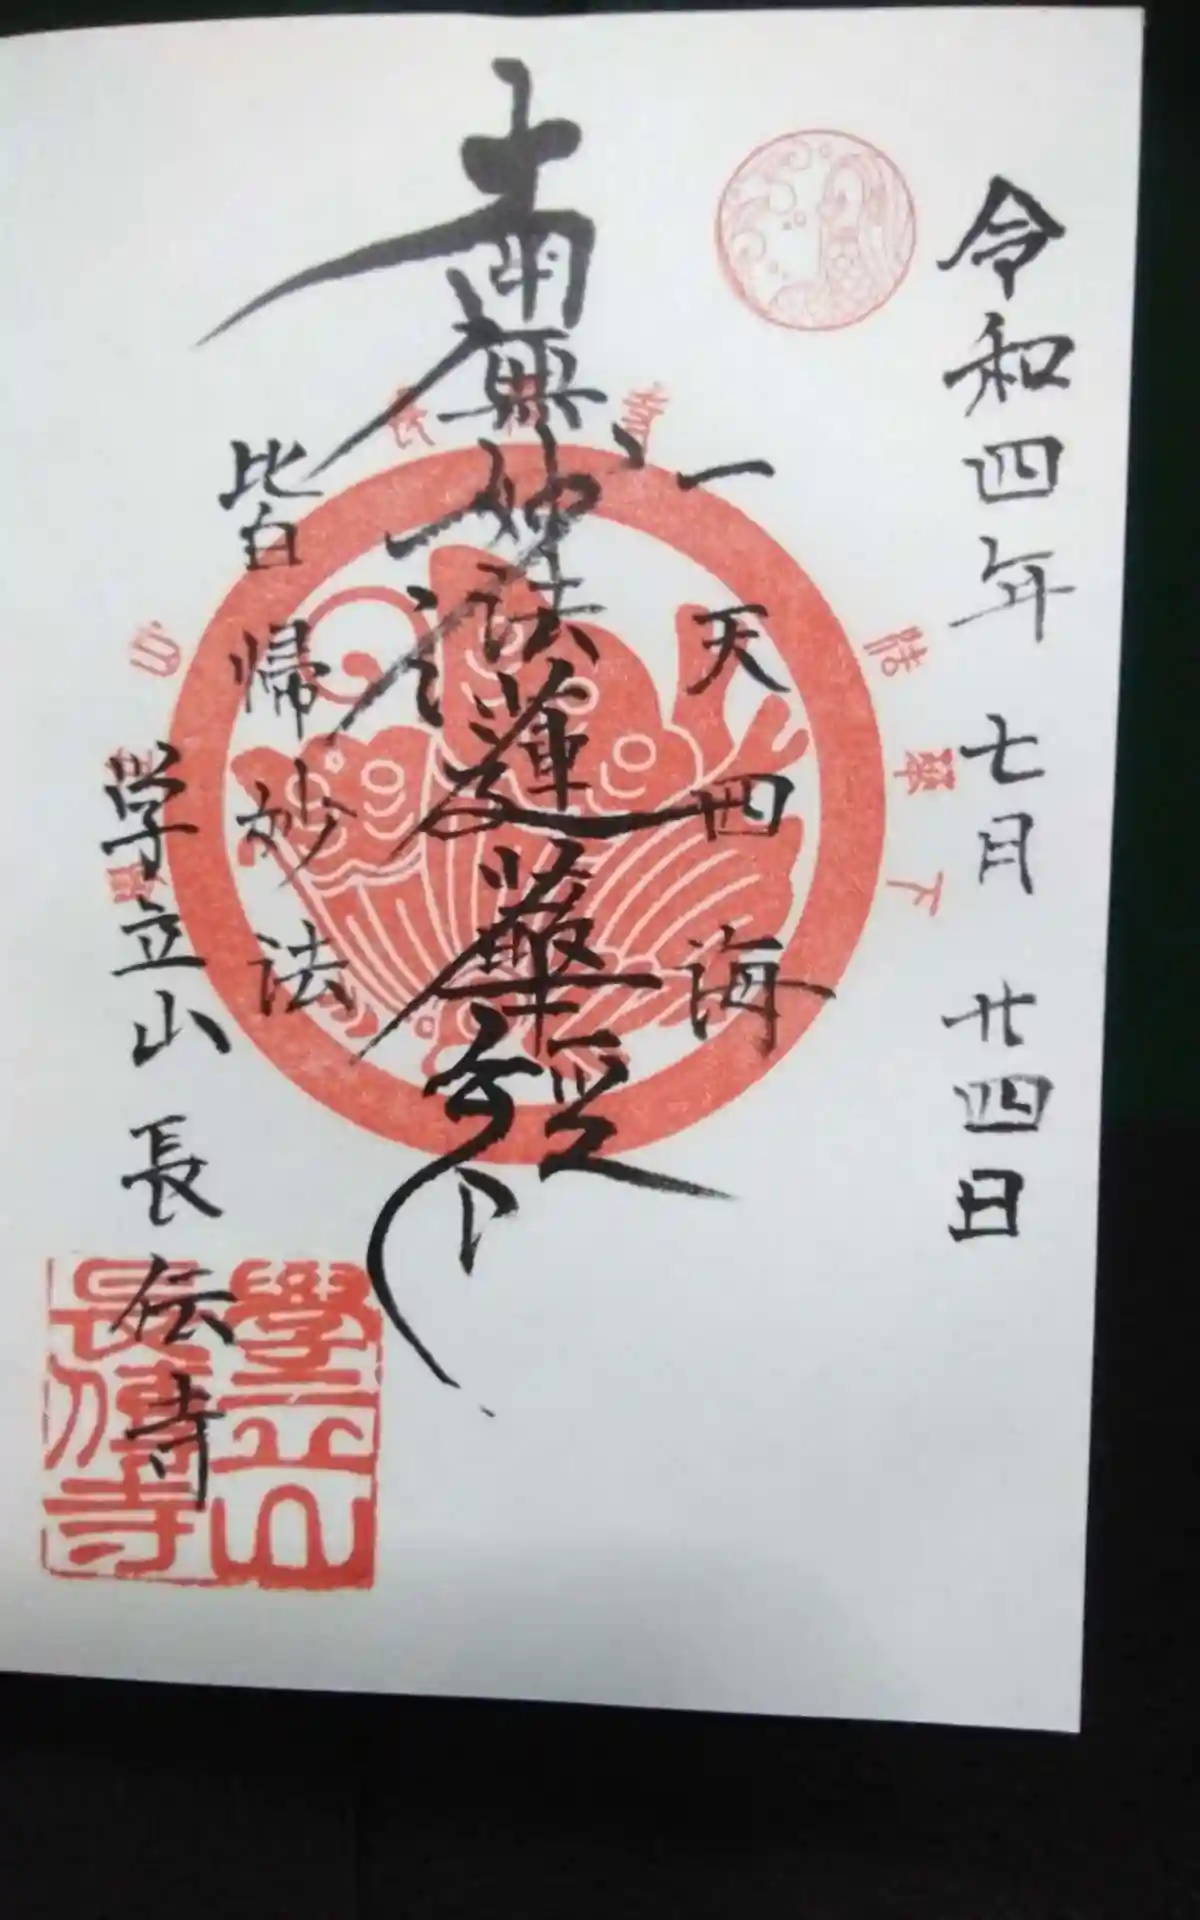 令和四年七月廿四日
一天四海
南無妙法蓮華経
皆帰妙法
学立山長伝寺
學立山
長傳寺